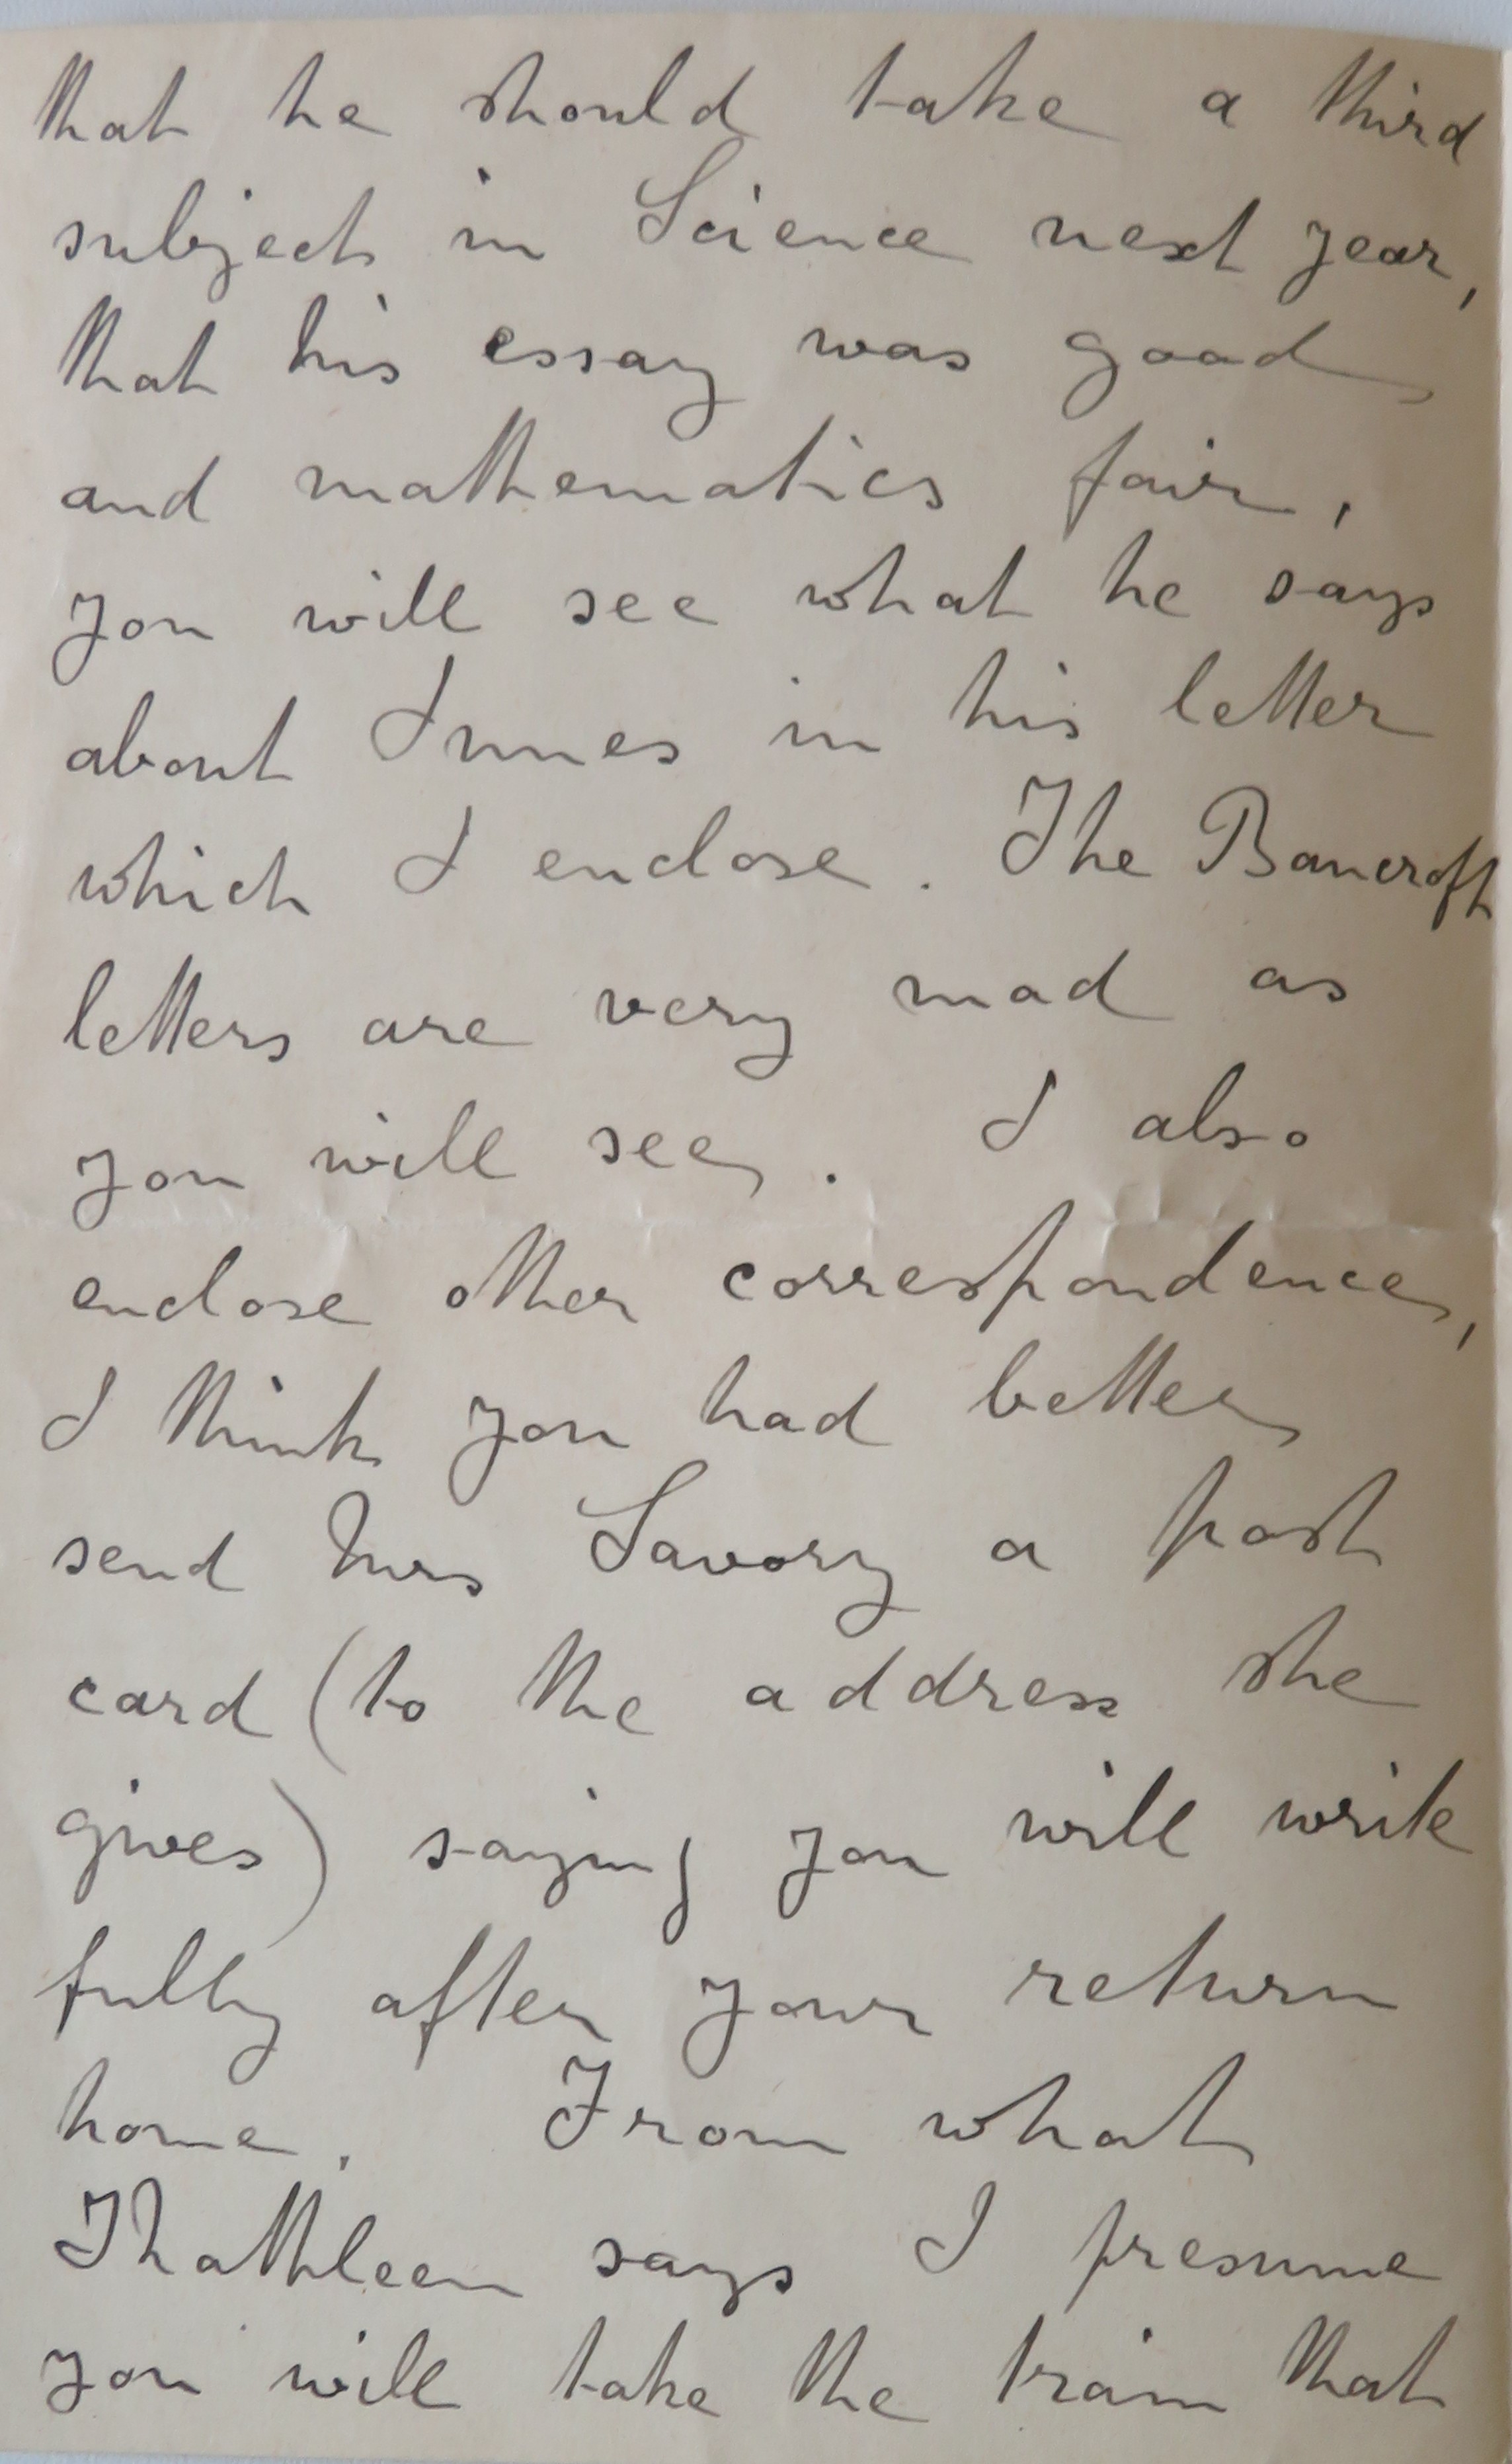 that he should take a third
subject in Science next year,
that his essay was good
and mathematics fair,
you will see what he says
about Innes in his letter
which I enclose. The Bancroft
letters are very mad as
you will see. I also
enclose other correspondence,
I think you had better
send Mrs Savory a post
card (to the address she
gives) saying you will write
fully after your return
home. From what
Kathleen says I presume
you will take the train that